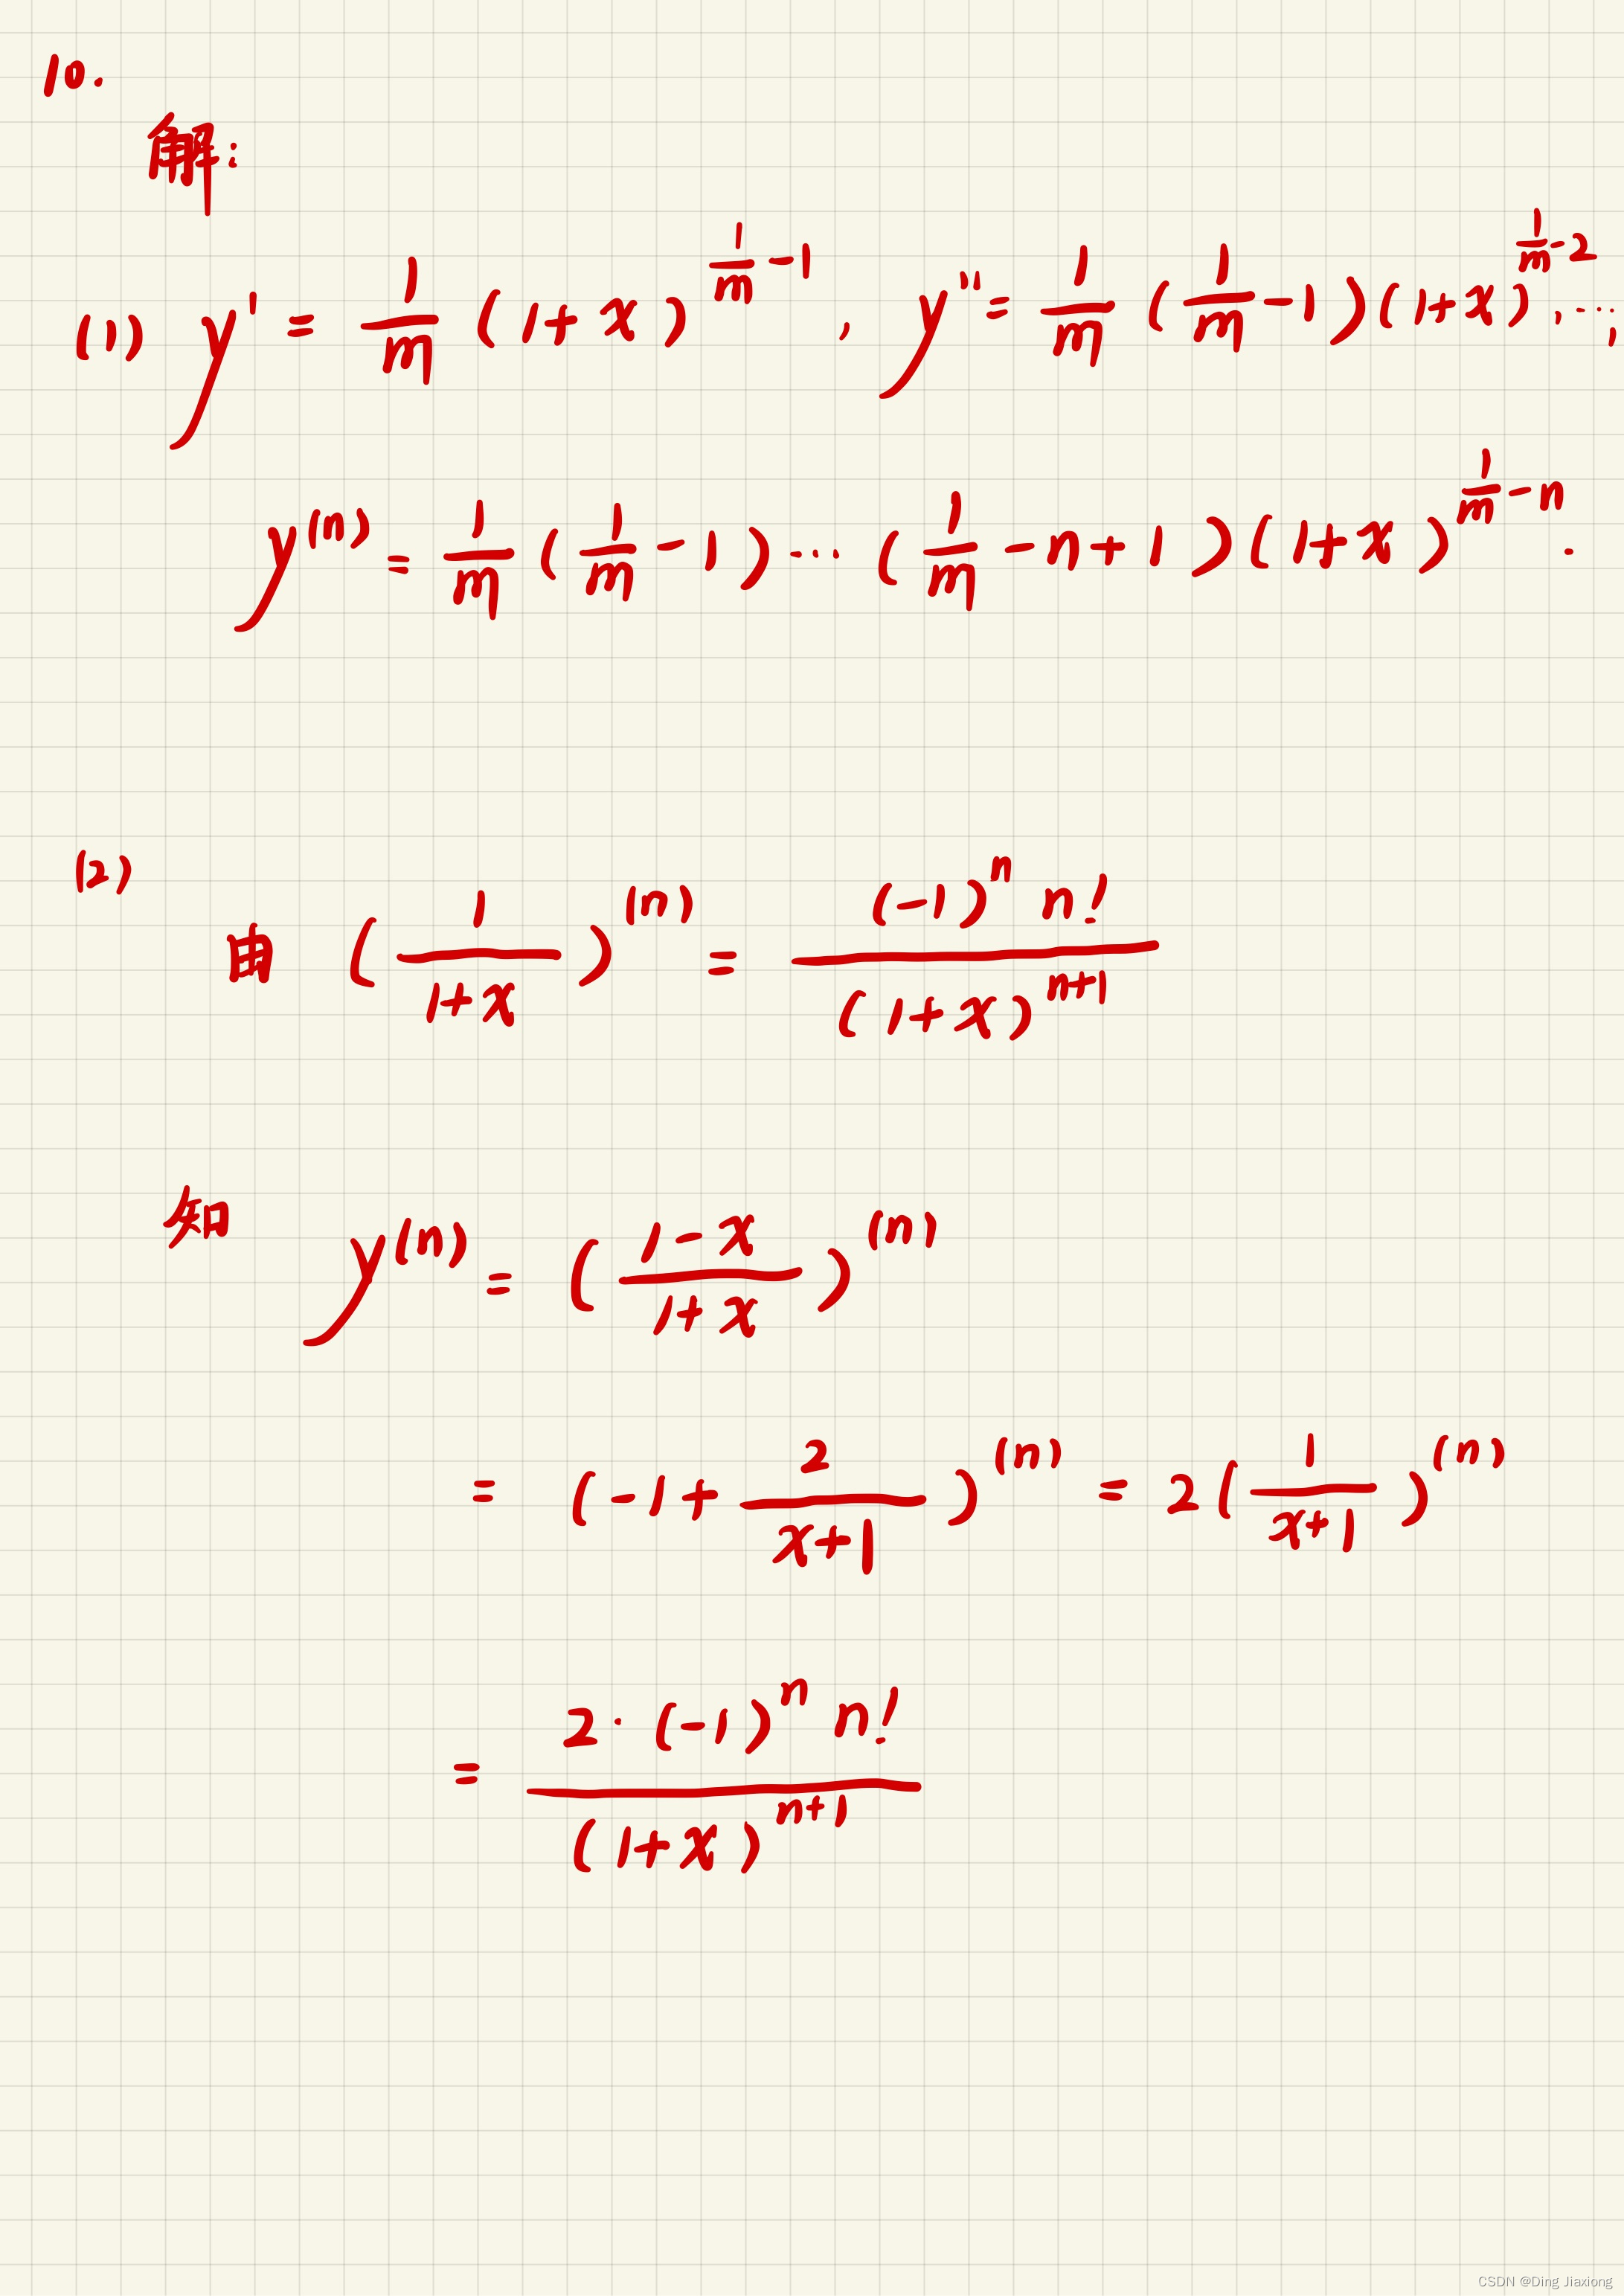 10.
解:
(1) y' = \frac{1}{m}(1+x)^{\frac{1}{m}-1}, y'' = \frac{1}{m}(\frac{1}{m}-1)(1+x)^{\frac{1}{m}-2}, ...,
y^{(n)} = \frac{1}{m}(\frac{1}{m}-1)···(\frac{1}{m}-n+1)(1+x)^{\frac{1}{m}-n}.
(2)
由 (\frac{1}{1+x})^{(n)} = \frac{(-1)^n n!}{(1+x)^{n+1}}
知 y^{(n)} = (\frac{1-x}{1+x})^{(n)}
= (-1+\frac{2}{x+1})^{(n)} = 2(\frac{1}{x+1})^{(n)}
= \frac{2·(-1)^n n!}{(1+x)^{n+1}}
CSDN @Ding Jiaxiong